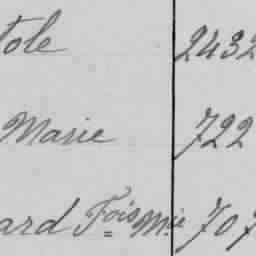 tole 2432
Marie 722
ard Fois Mie 707